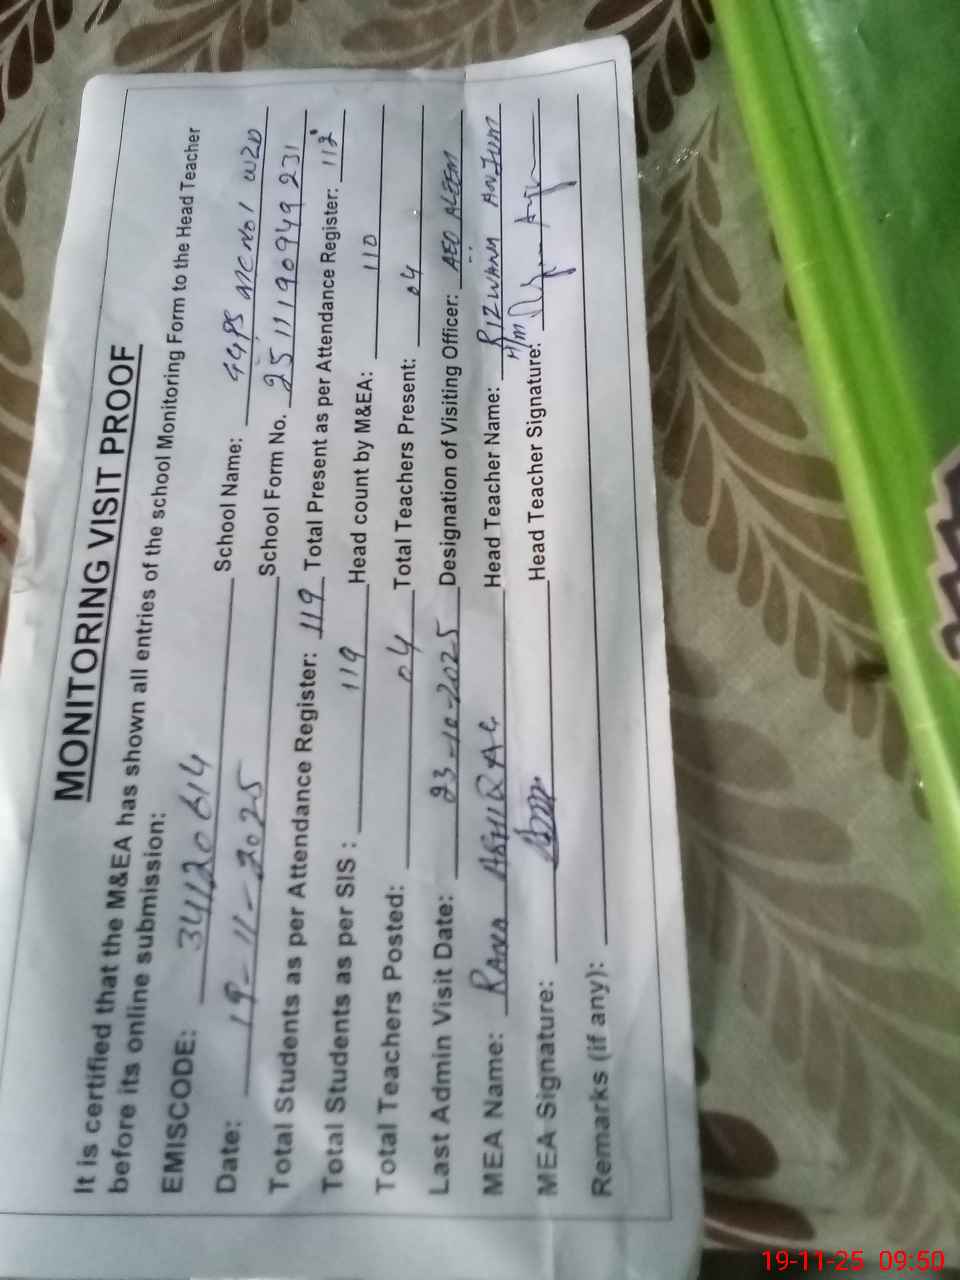 MONITORING VISIT PROOF
It is certified that the M&EA has shown all entries of the school Monitoring Form to the Head Teacher
before its online submission:
EMISCODE: 34120614 School Name: No 1 WZD
Date: 19-11-2025 School Form No. 2511190949231
Total Students as per Attendance Register: 119 Total Present as per Attendance Register: 112
Total Students as per SIS : 119 Head count by M&EA: 110
Total Teachers Posted: 04 Total Teachers Present: 04
Last Admin Visit Date: 23-10-2025 Designation of Visiting Officer: AEO ALEEM
MEA Name: RANA ASHIQ Head Teacher Name: RIZWAN ANJUM
MEA Signature: Head Teacher Signature:
Remarks (if any):
19-11-25 09:50